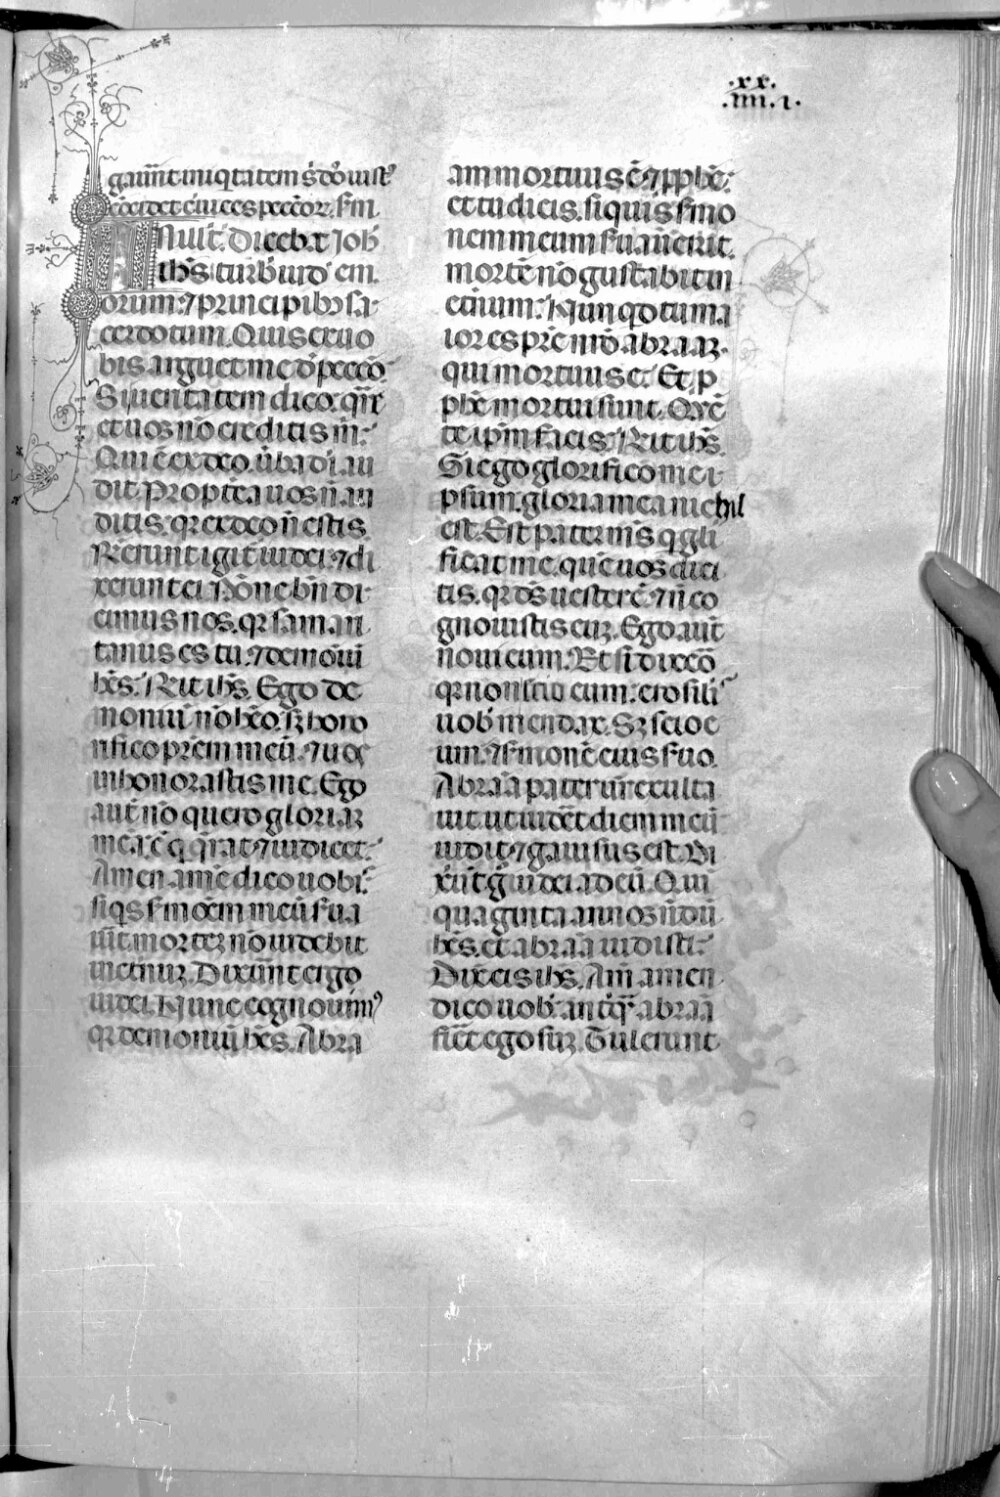 .xx.
.iiii.i.
gauūt iniq̇tatem s̄ dō uiste᷒
Iñ illo t̄. Diceb.t Joħ
ihs̄ turbiud̓ em.
orum: ⁊ principibꝫ sa
cerdotum. Quis ex uo
bis arguet me d̓ pccō.
Si ueritatem dico. qr̄e
et uos nō creditis m̄:
Qui ē ex deo. ūba di au
dit. Propt̄ea uos n̄ au
ditis. qꝛ ex deo n̄ estis.
R̄erunt igit̓ iudei. ⁊ di
xerunt ei. Nōne bn̄ di
cimus nos. qꝛ samari
tanus es tu. ⁊ demōiū
hēs. R̄it ihs̄. Ego de
moniū nō hēo. sꝫ hono
rifico prēm meū. ⁊ uos
inhonorastis me. Ego
aut̄ nō quero gloriaꝫ
meā. ē q q̄rat ⁊ iudicet.
Amen amē dico uobis.
siq̓s s̓moēm meū s̓ua
uit̄. mortēꝫ nō uidebit
inetnuꝫ. Dixūt ergo
iudei. Nunc cognouim᷒
qꝛ demoniū hēs. Abra
am mortuus ē. ⁊ pphē:
et tu dicis. siquis s̓mo
nem meum s̓uaūerit.
mortē nō gustabit in
etnum. Nunqd tu ma
ior es pr̄e nr̄o abraaꝫ.
qui mortuus ē. Et p
phē mortui sunt. Quē
te ip̄m facis. R̄it ihs̄.
Si ego glorifico me i
psum. gloria mea nichil
est. Est pater m̄s q gl̄i
ficat me. quē uos dici
tis. qꝛ ds̄ uester ē. ⁊ n̄ co
gnouistis euꝫ. Ego aut̄
noui eum. Et si dixerō
qꝛ non scio eum: ero sili᷒
uob̄ mendax. Sꝫ scio e
um. ⁊ s̓monē eius s̓uo.
Abraā pater ur̄ exulta
uit ut uidēt diem meū
uidit ⁊ gauisus est. Di
xūt g̓ iudei ad eū. Qui
quaginta annos n̄dū
hēs. et abraā uidisti:
Dix̄ eis ihs̄. Am̄ amen
dico uob̄. anteq̄ꝫ abraā
fiēt ego suꝫ. Tulerunt